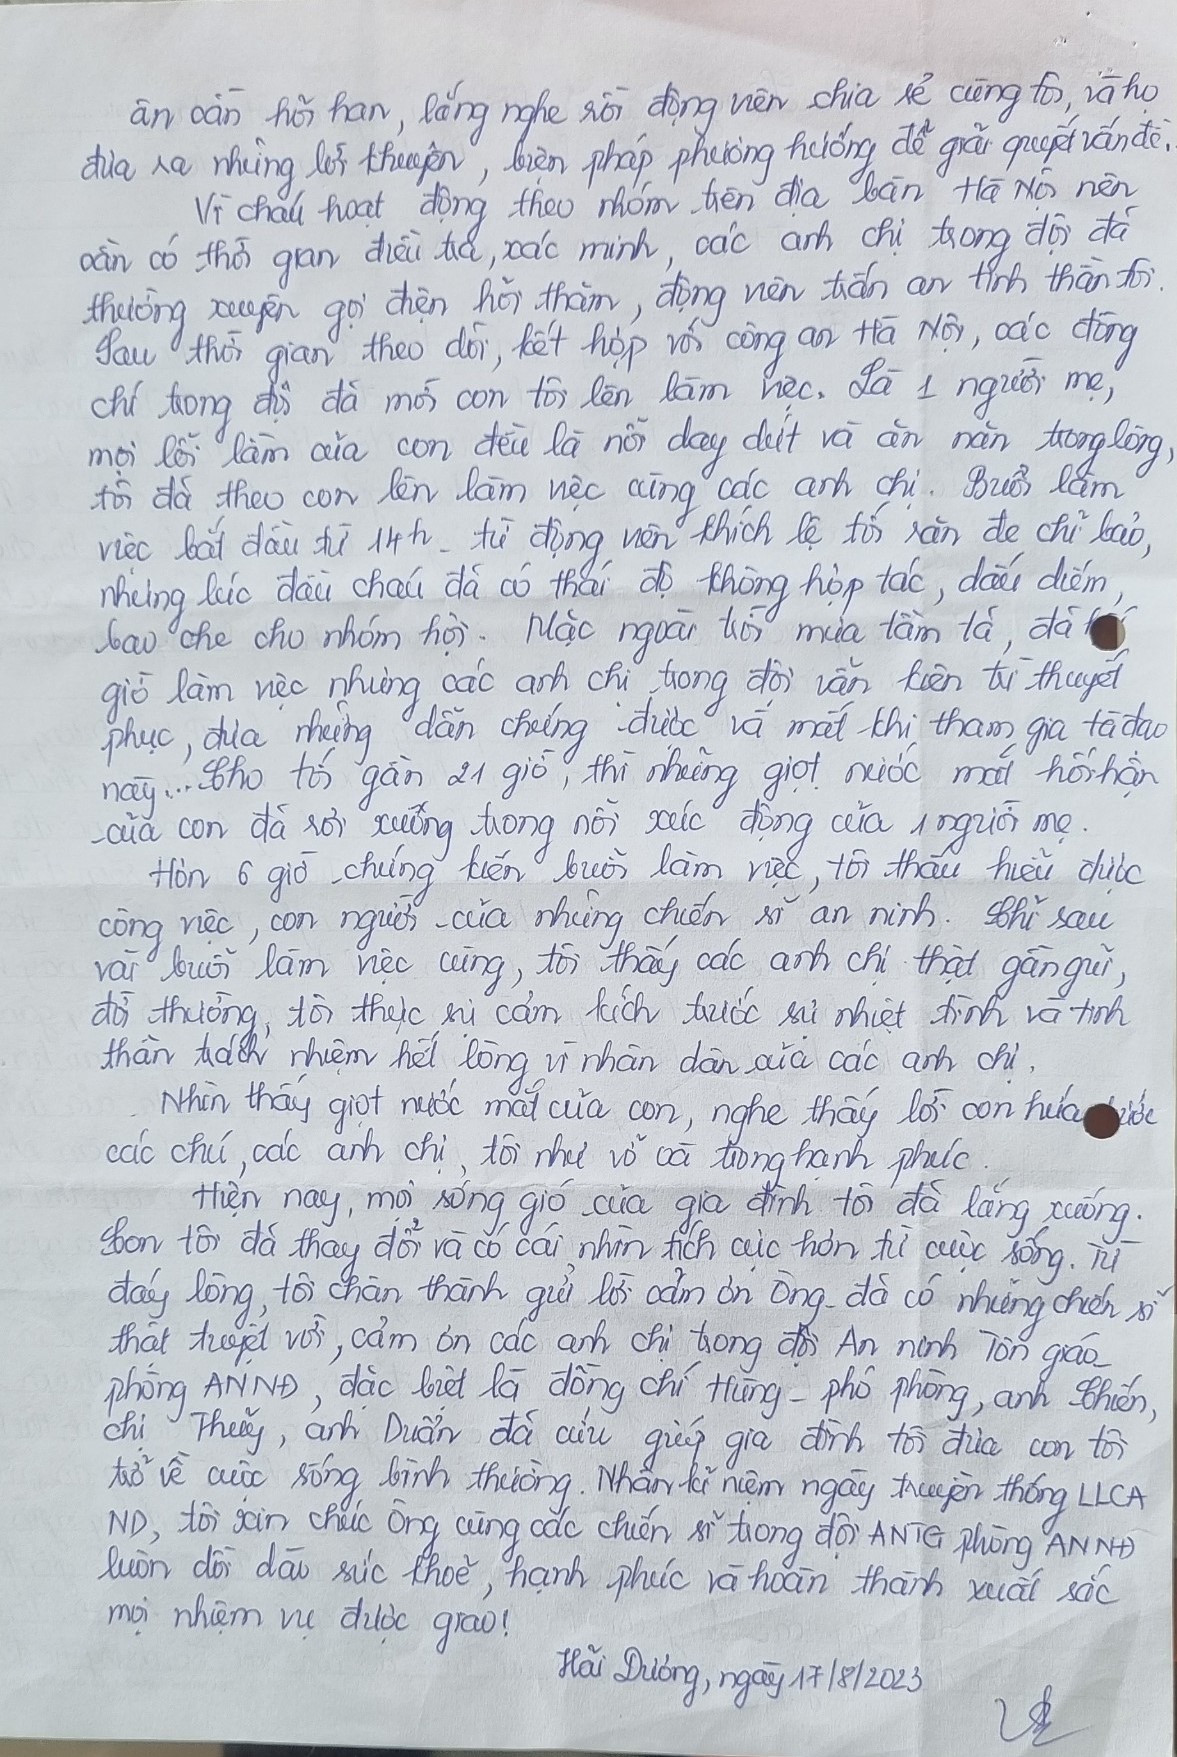 ân cần hỏi han, lắng nghe rồi động viên chia sẻ cùng tôi, và họ
đưa ra những lời khuyên, biện pháp phương hướng để giải quyết vấn đề.
Vì cháu hoạt động theo nhóm trên địa bàn Hà Nội nên
cần có thời gian điều tra, xác minh, các anh chị trong đội đã
thường xuyên gọi điện hỏi thăm, động viên trấn an tinh thần tôi.
Sau thời gian theo dõi, kết hợp với công an Hà Nội, các đồng
chí trong đội đã mời con tôi lên làm việc. Là 1 người mẹ,
mọi lỗi lầm của con đều là nỗi day dứt và ăn năn trong lòng,
tôi đã theo con lên làm việc cùng các anh chị. Buổi làm
việc bắt đầu từ 14h - từ động viên khích lệ tới răn đe chỉ bảo,
nhưng lúc đầu cháu đã có thái độ không hợp tác, dấu diếm,
bao che cho nhóm hội. Mặc ngoài trời mưa tầm tã, đã
giờ làm việc nhưng các anh chị trong đội vẫn kiên trì thuyết
phục, đưa những dẫn chứng được và mất khi tham gia tà đạo
này... Cho tới gần 21 giờ, thì những giọt nước mắt hối hận
của con đã rơi xuống trong nỗi xúc động của 1 người mẹ.
Hơn 6 giờ chứng kiến buổi làm việc, tôi thấu hiểu được
công việc, con người của những chiến sĩ an ninh. Chỉ sau
vài buổi làm việc cùng, tôi thấy các anh chị thật gần gũi,
đời thường, tôi thực sự cảm kích trước sự nhiệt tình và tinh
thần trách nhiệm hết lòng vì nhân dân của các anh chị.
Nhìn thấy giọt nước mắt của con, nghe thấy lời con hứa trước
các chú, các anh chị, tôi như vỡ oà trong hạnh phúc.
Hiện nay, mọi sóng gió của gia đình tôi đã lắng xuống.
Con tôi đã thay đổi và có cái nhìn tích cực hơn từ cuộc sống. Từ
đáy lòng, tôi chân thành gửi lời cảm ơn Ông - đã có những chiến sĩ
thật tuyệt vời, cảm ơn các anh chị trong đội An ninh Tôn giáo -
phòng ANNĐ, đặc biệt là đồng chí Hùng - phó phòng, anh Chiến,
chị Thuỷ, anh Duẩn đã cứu giúp gia đình tôi đưa con tôi
trở về cuộc sống bình thường. Nhân kỉ niệm ngày truyền thống LLCA
ND, tôi xin chúc Ông cùng các chiến sĩ trong đội ANTG phòng ANNĐ
luôn dồi dào sức khoẻ, hạnh phúc và hoàn thành xuất sắc
mọi nhiệm vụ được giao!
Hải Dương, ngày 17/8/2023